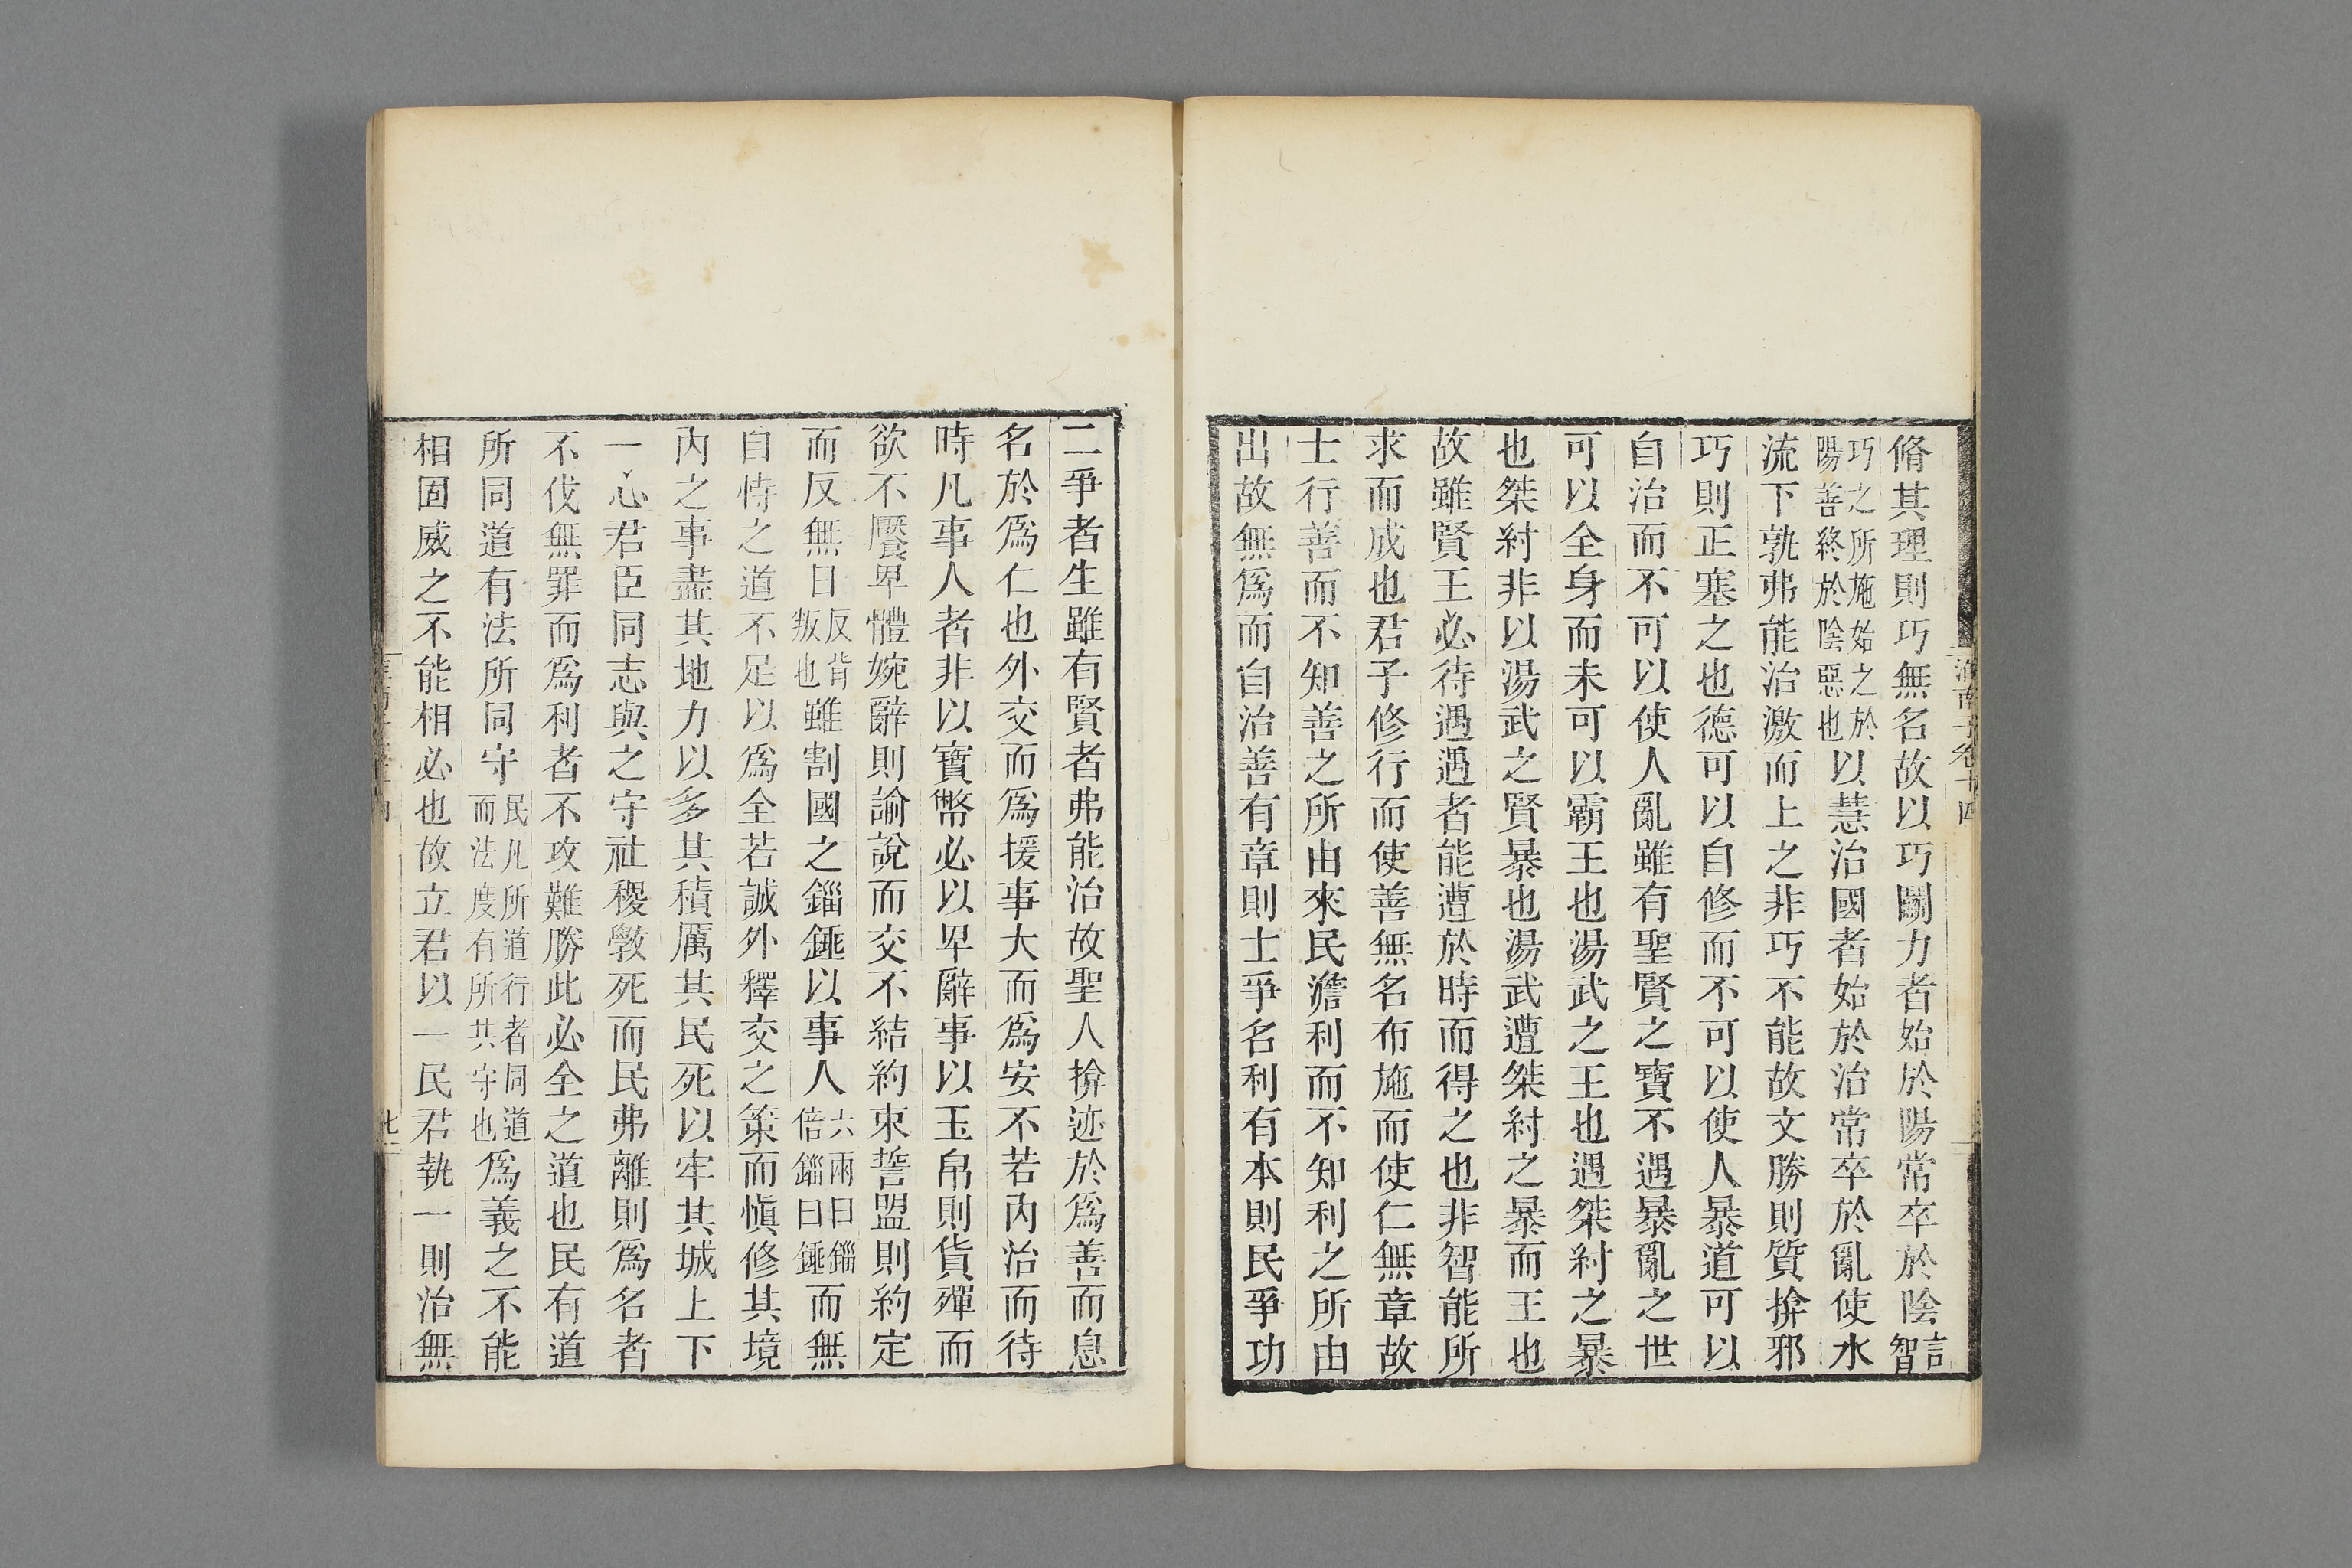 脩其理則巧無名故以巧鬭力者始於陽常卒於陰言智
巧之所施始之於陽善終於陰惡也以慧治國者始於治常卒於亂使水
流下孰弗能治激而上之非巧不能故文勝則質揜邪
巧則正塞之也德可以自修而不可以使人暴道可以
自治而不可以使人亂雖有聖賢之寶不遇暴亂之世
可以全身而未可以霸王也湯武之王也遇桀紂之暴
也桀紂非以湯武之賢暴也湯武遭桀紂之暴而王也
故雖賢王必待遇遇者能遭於時而得之也非智能所
求而成也君子修行而使善無名布施而使仁無章故
士行善而不知善之所由來民澹利而不知利之所由
出故無爲而自治善有章則士爭名利有本則民爭功
二爭者生雖有賢者弗能治故聖人揜迹於爲善而息
名於爲仁也外交而爲援事大而爲安不若内治而待
時凡事人者非以寶幣必以卑辭事以玉帛則貨殫而
欲不饜卑體婉辭則諭說而交不結約束誓盟則約定
而反無日反背叛也雖割國之錙錘以事人六兩曰錙倍錙曰錘而無
自恃之道不足以爲全若誠外釋交之策而愼修其境
内之事盡其地力以多其積厲其民死以牢其城上下
一心君臣同志與之守社稷斆死而民弗離則爲名者
不伐無罪而爲利者不攻難勝此必全之道也民有道
所同道有法所同守民凡所道行者同道而法度有所共守也爲義之不能
相固威之不能相必也故立君以一民君執一則治無
淮南子卷十四